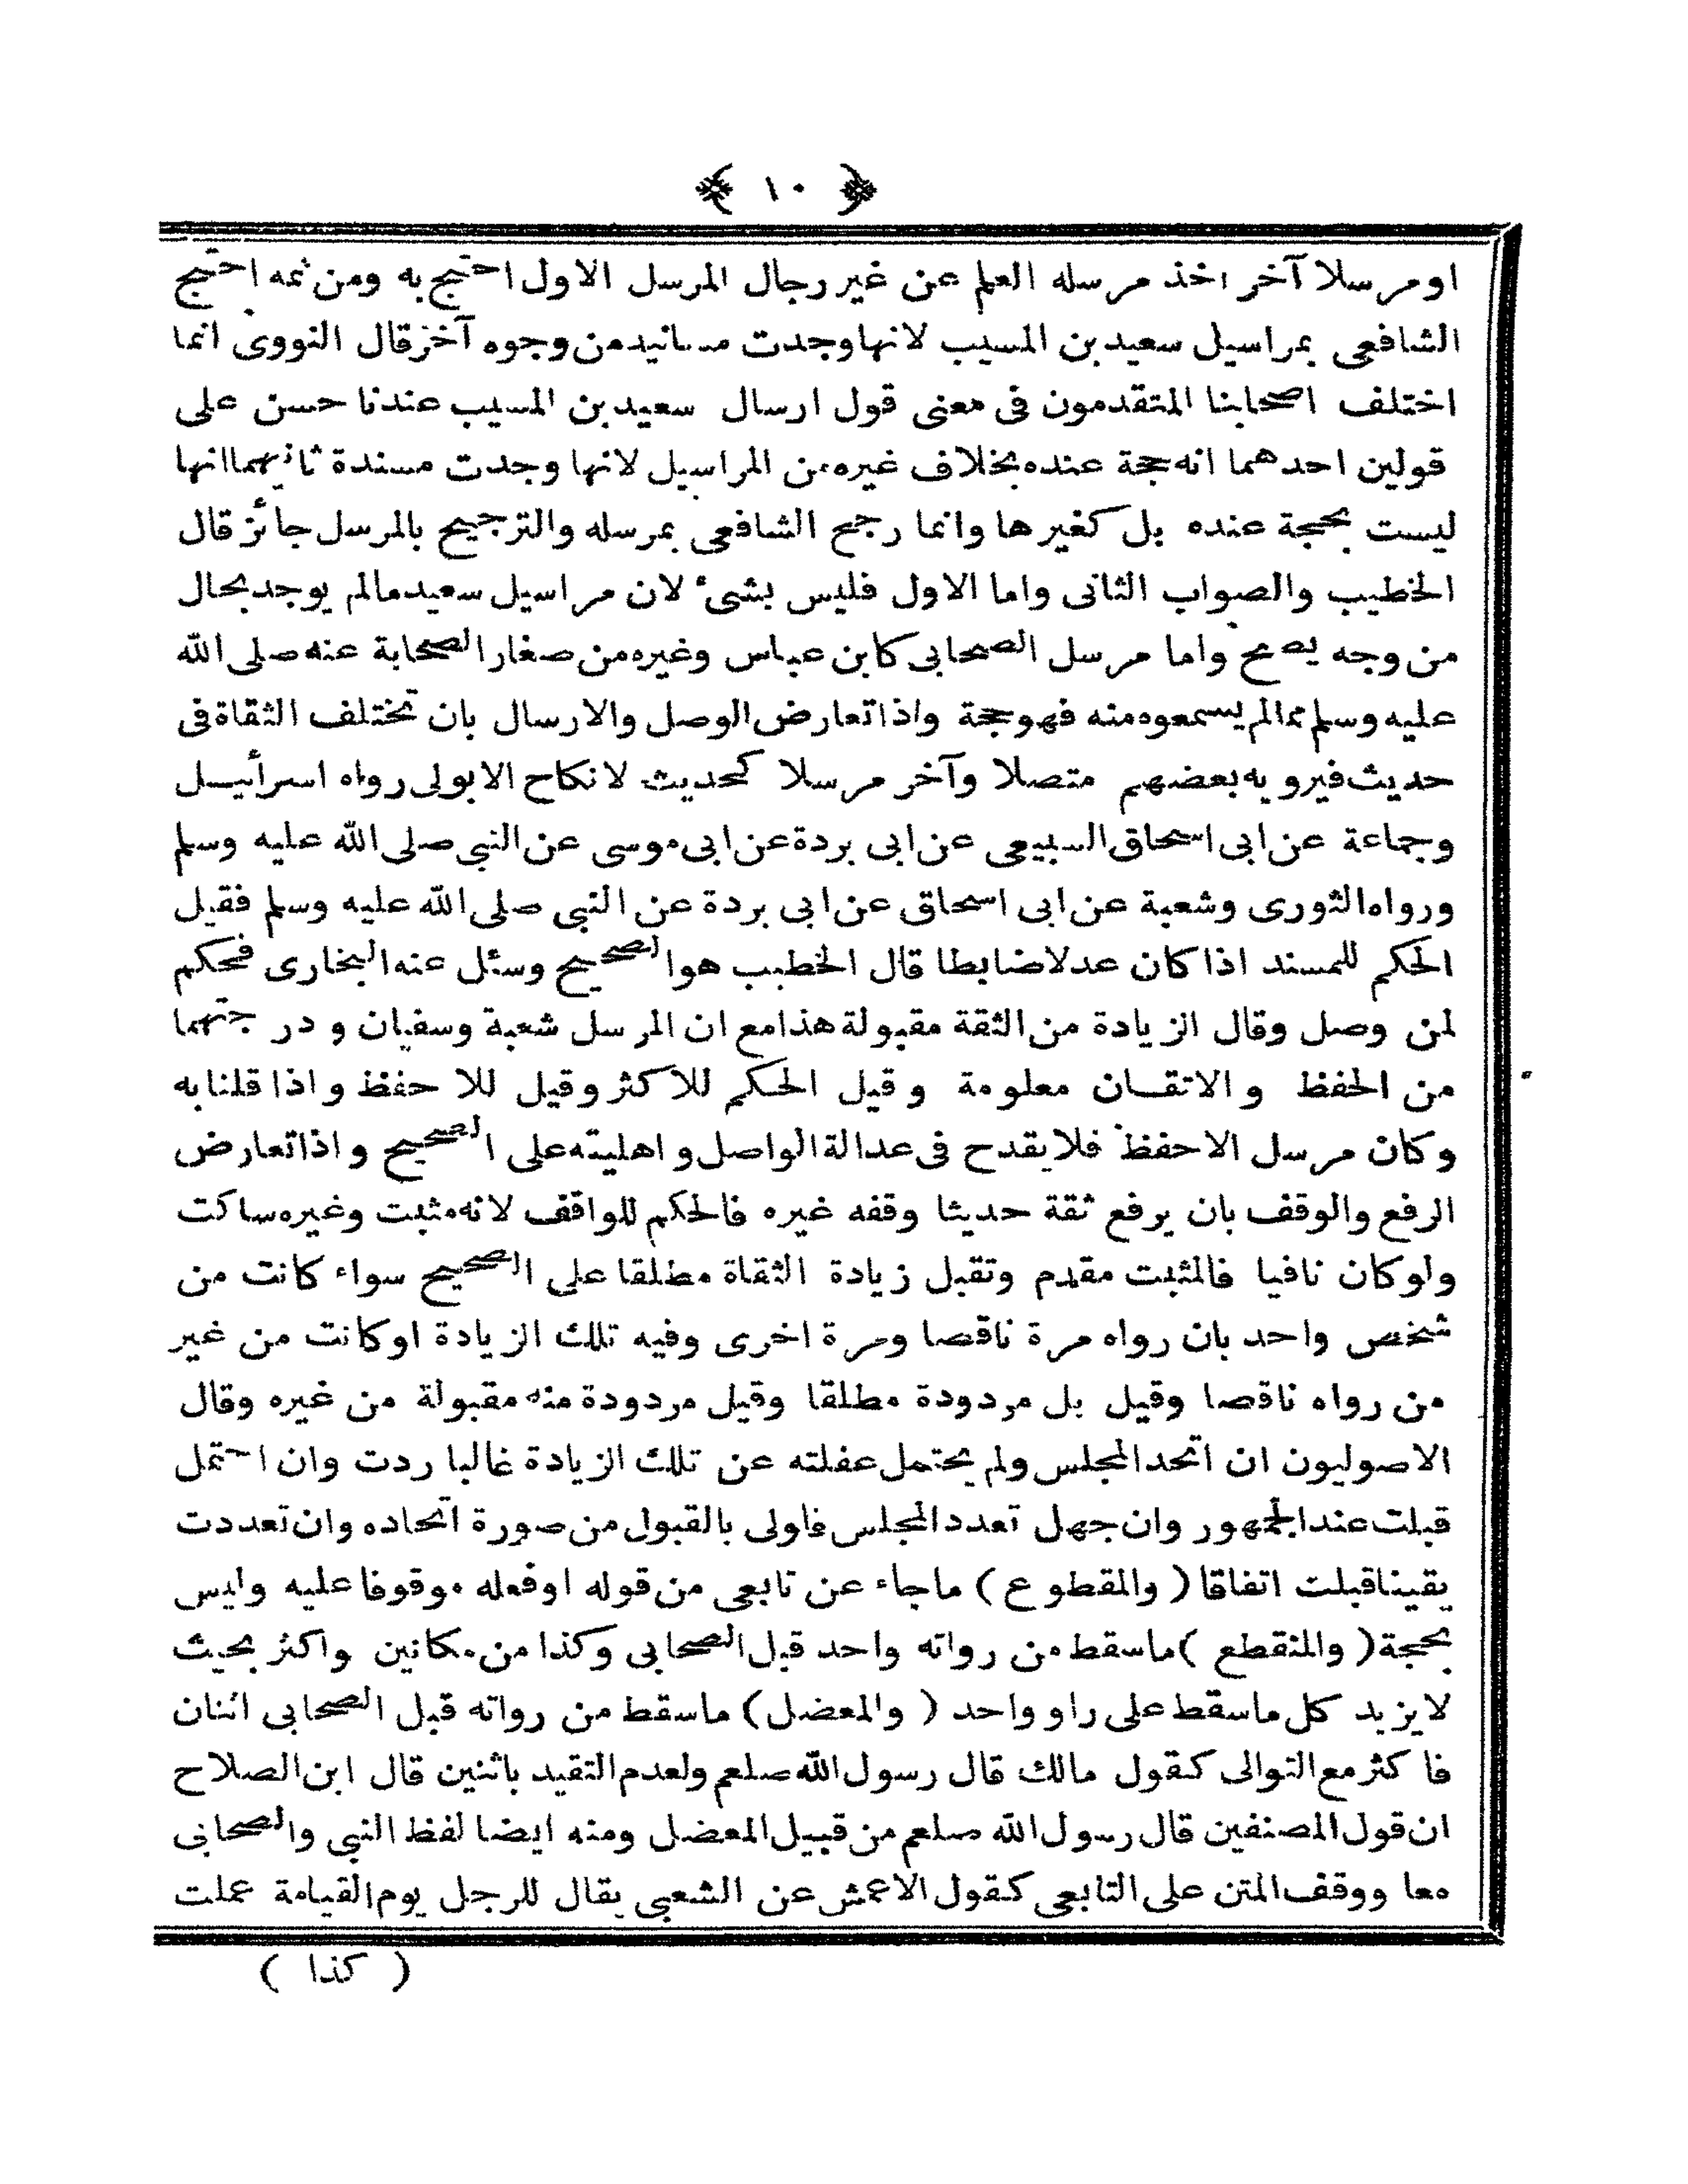 ﴿ ١٠ ﴾
او مرسلا آخر اخذ مرسله العلم عن غير رجال المرسل الاول احتج به ومن ثمه احتج
الشافعى بمراسيل سعيد بن المسيب لانها وجدت مسانيد من وجوه آخر قال النووى انما
اختلف اصحابنا المتقدمون فى معنى قول ارسال سعيد بن المسيب عندنا حسن على
قولين احدهما انه حجة عنده بخلاف غيره من المراسيل لانها وجدت مسندة ثانيهما انها
ليست بحجة عنده بل كغيرها وانما رجح الشافعى بمرسله والترجيح بالمرسل جائز قال
الخطيب والصواب الثانى واما الاول فليس بشىء لان مراسيل سعيد مالم يوجد بحال
من وجه يصح واما مرسل الصحابى كابن عباس وغيره من صغار الصحابة عنه صلى الله
عليه وسلم مما لم يسمعوه منه فهو حجة واذا تعارض الوصل والارسال بان تختلف الثقاة فى
حديث فيرويه بعضهم متصلا وآخر مرسلا كحديث لا نكاح الا بولى رواه اسرائيل
وجماعة عن ابى اسحاق السبيعى عن ابى بردة عن ابى موسى عن النبي صلى الله عليه وسلم
ورواه الثورى وشعبة عن ابى اسحاق عن ابى بردة عن النبى صلى الله عليه وسلم فقيل
الحكم للمسند اذا كان عدلا ضابطا قال الخطيب هو الصحيح وسئل عنه البخارى فحكم
لمن وصل وقال الزيادة من الثقة مقبولة هذا مع ان المرسل شعبة وسفيان و درجتهما
من الحفظ والاتقان معلومة وقيل الحكم للاكثر وقيل للاحفظ واذا قلنا به
وكان مرسل الاحفظ فلا يقدح فى عدالة الواصل واهليته على الصحيح واذا تعارض
الرفع والوقف بان يرفع ثقة حديثا وقفه غيره فالحكم للواقف لانه مثبت وغيره ساكت
ولو كان نافيا فالمثبت مقدم وتقبل زيادة الثقاة مطلقا على الصحيح سواء كانت من
شخص واحد بان رواه مرة ناقصا ومرة اخرى وفيه تلك الزيادة او كانت من غير
من رواه ناقصا وقيل بل مردودة مطلقا وقيل مردودة منه مقبولة من غيره وقال
الاصوليون ان اتحد المجلس ولم يحتمل عفلته عن تلك الزيادة غالبا ردت وان احتمل
قبلت عند الجمهور وان جهل تعدد المجلس فاولى بالقبول من صورة اتحاده وان تعددت
يقينا قبلت اتفاقا ( والمقطوع ) ما جاء عن تابعى من قوله او فعله موقوفا عليه وليس
بحجة ( والمنقطع ) ما سقط من رواته واحد قبل الصحابى وكذا من مكانين واكثر بحيث
لا يزيد كل ما سقط على راو واحد ( والمعضل ) ما سقط من رواته قبل الصحابى اثنان
فاكثر مع التوالى كقول مالك قال رسول الله صلعم ولعدم التقيد باثنين قال ابن الصلاح
ان قول المصنفين قال رسول الله صلعم من قبيل المعضل ومنه ايضا لفظ النبى والصحابى
معا ووقف المتن على التابعى كقول الاعمش عن الشعبى يقال للرجل يوم القيامة عملت
( كذا )